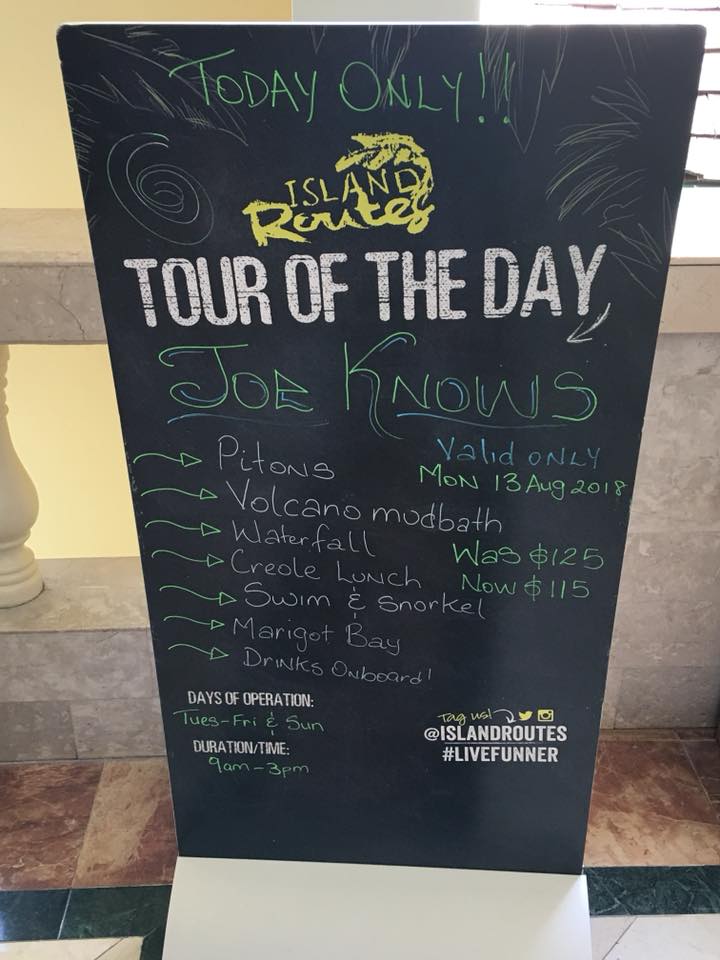 TODAY ONLY!!
ISLAND
Routes
TOUR OF THE DAY
JOE KNOWS
Valid ONLY
MON 13 Aug 2018
Pitons
Volcano mudbath
Waterfall
Creole Lunch
Swim & Snorkel
Marigot Bay
Drinks Onboard!
Was $125
Now $115
DAYS OF OPERATION:
Tues-Fri & Sun
DURATION/TIME:
9am-3pm
Tag us!
@ISLANDROUTES
#LIVEFUNNER